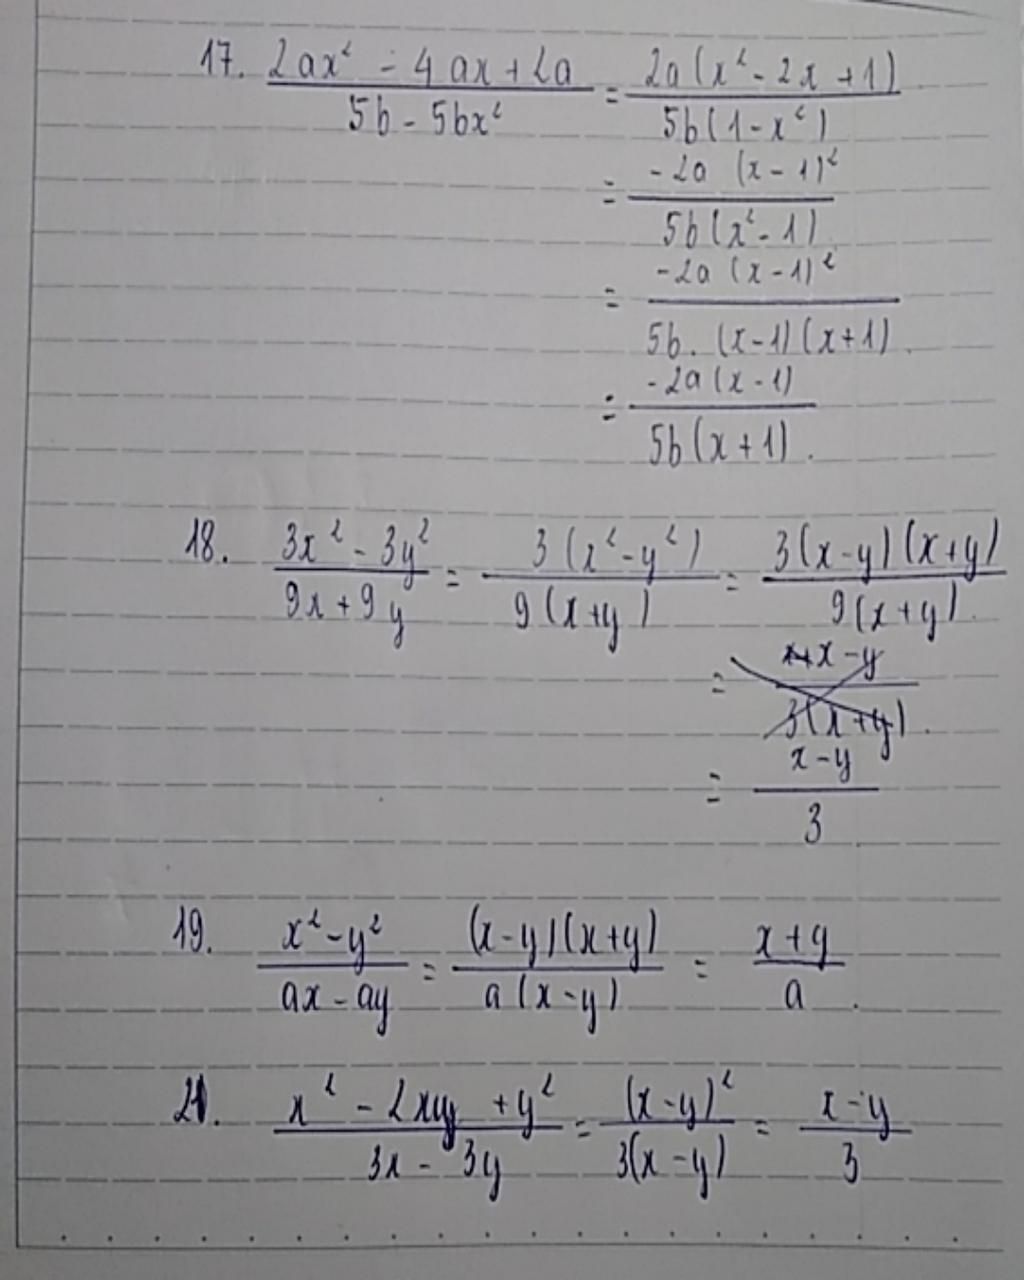 17. (2ax² - 4ax + 2a)/(5b - 5bx²) = 2a(x² - 2x + 1)/5b(1 - x²)
= -2a (x - 1)²/5b(x² - 1)
= -2a (x - 1)²/5b. (x - 1)(x + 1).
= -2a(x - 1)/5b(x + 1).
18. (3x² - 3y²)/(9x + 9y) = 3(x² - y²)/9(x + y) = 3(x - y)(x + y)/9(x + y).
= x - y/3(x + y).
= (x - y)/3
19. (x² - y²)/(ax - ay) = (x - y)(x + y)/a(x - y) = (x + y)/a.
21. (x² - 2xy + y²)/(3x - 3y) = (x - y)²/3(x - y) = (x - y)/3